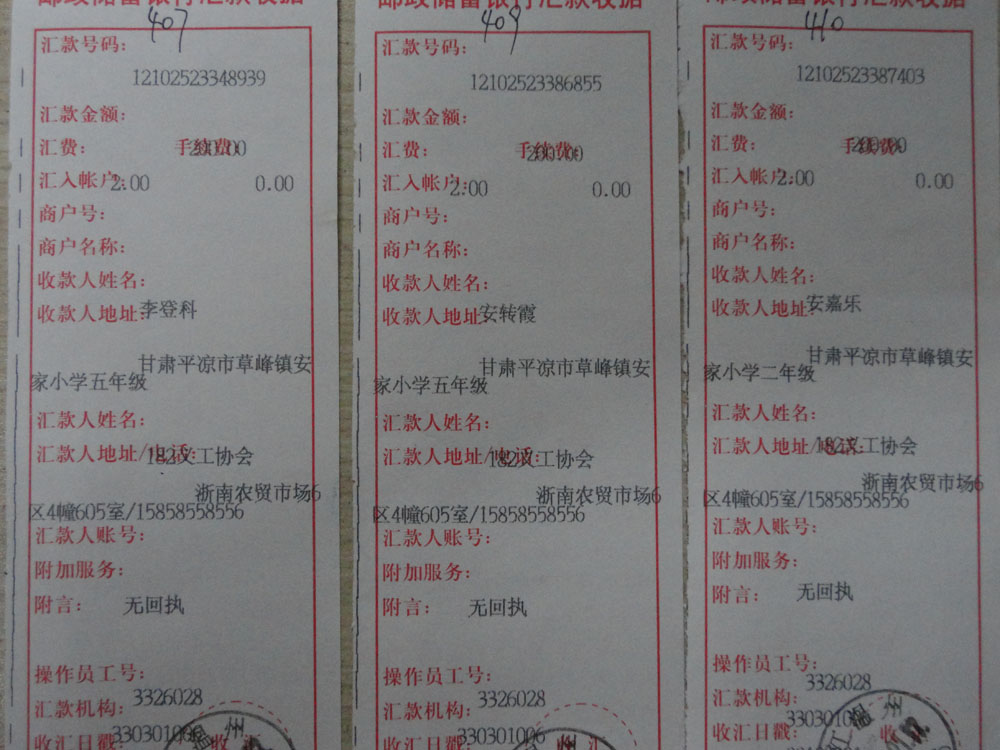 邮政储蓄银行汇款收据
407
汇款号码:
12102523348939
汇款金额:
汇费: 手续费:
200.00
汇入帐户:
2.00 0.00
商户号:
商户名称:
收款人姓名:
收款人地址:
李登科
甘肃平凉市草峰镇安
家小学五年级
汇款人姓名:
汇款人地址/电话:
182义工协会
浙南农贸市场6
区4幢605室/15858558556
汇款人账号:
附加服务:
附言: 无回执
操作员工号:
3326028
汇款机构:
330301006
收汇日戳:
邮政储蓄银行汇款收据
409
汇款号码:
12102523386855
汇款金额:
汇费: 手续费:
200.00
汇入帐户:
2.00 0.00
商户号:
商户名称:
收款人姓名:
收款人地址:
安转霞
甘肃平凉市草峰镇安
家小学五年级
汇款人姓名:
汇款人地址/电话:
182义工协会
浙南农贸市场6
区4幢605室/15858558556
汇款人账号:
附加服务:
附言: 无回执
操作员工号:
3326028
汇款机构:
330301006
收汇日戳:
邮政储蓄银行汇款收据
410
汇款号码:
12102523387403
汇款金额:
汇费: 手续费:
200.00
汇入帐户:
2.00 0.00
商户号:
商户名称:
收款人姓名:
收款人地址:
安嘉乐
甘肃平凉市草峰镇安
家小学二年级
汇款人姓名:
汇款人地址/电话:
182义工协会
浙南农贸市场6
区4幢605室/15858558556
汇款人账号:
附加服务:
附言: 无回执
操作员工号:
3326028
汇款机构:
330301006
收汇日戳: